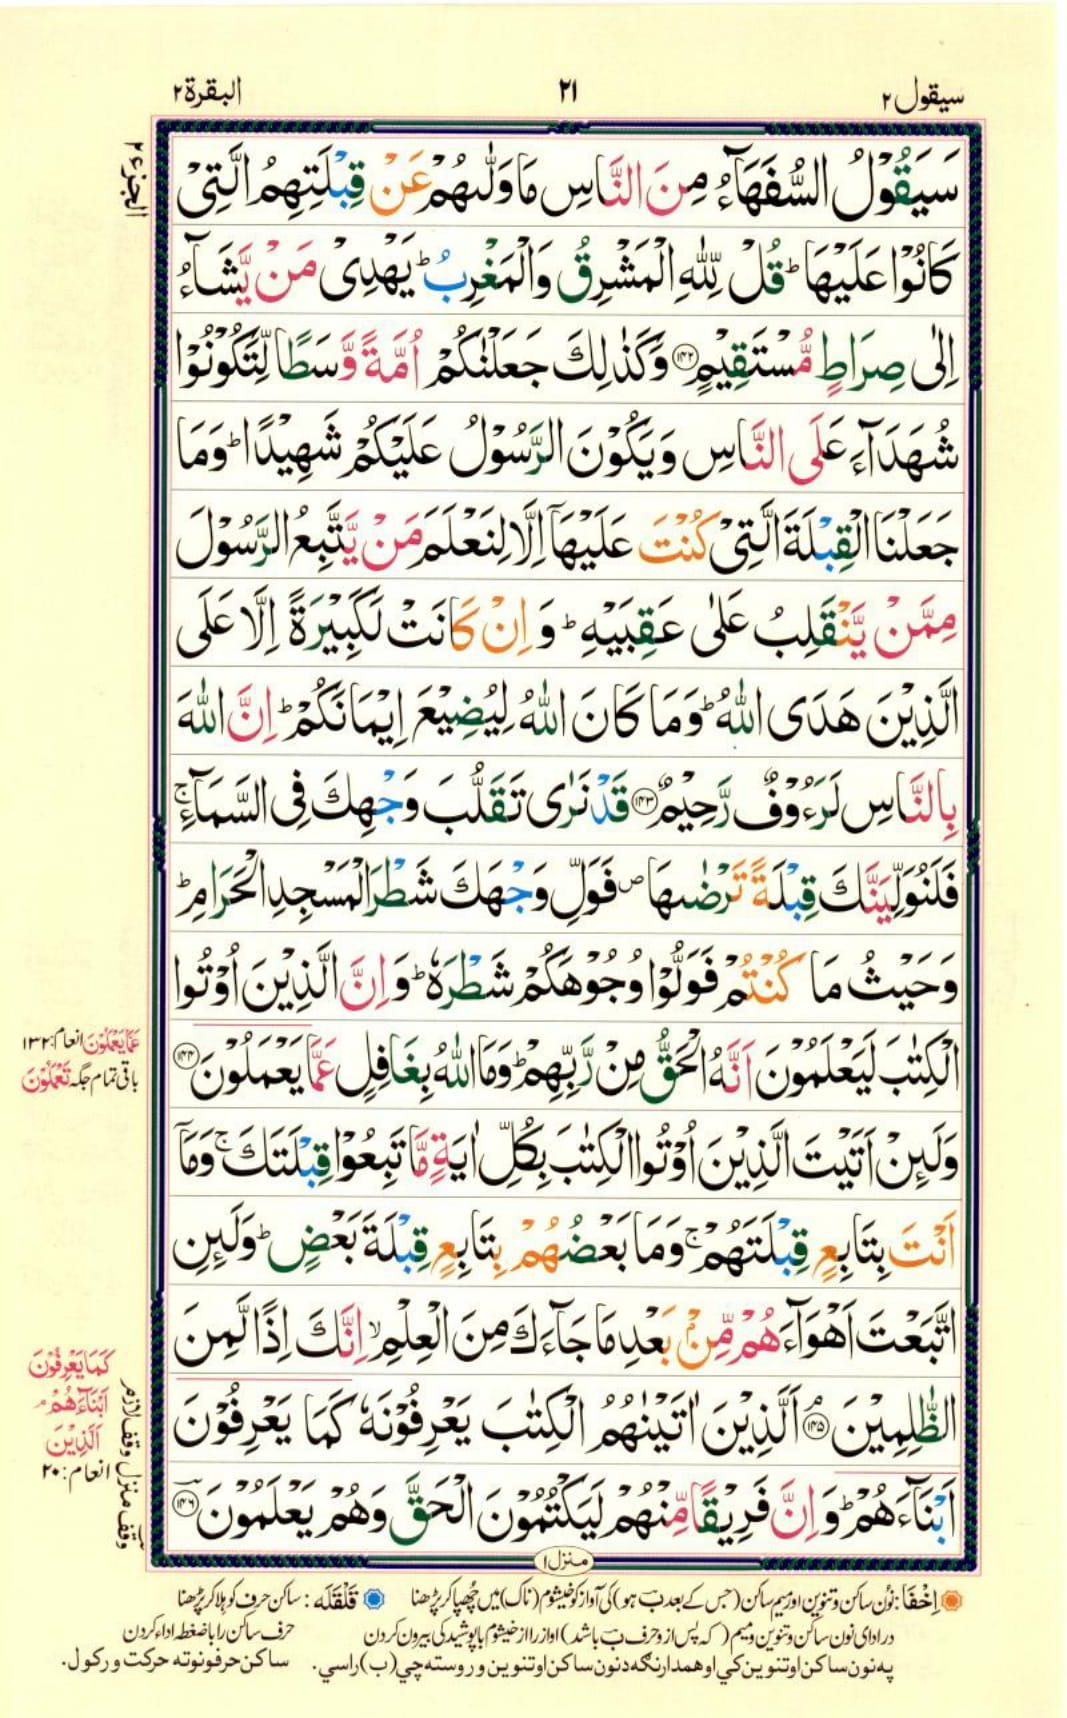 سيقول ٢
٢١
البقرة ٢
الجزء ٢
سَيَقُوْلُ السُّفَهَآءُ مِنَ النَّاسِ مَا وَلّٰىهُمْ عَنْ قِبْلَتِهِمُ الَّتِیْ
كَانُوْا عَلَيْهَا ؕ قُلْ لِّلّٰهِ الْمَشْرِقُ وَالْمَغْرِبُ ؕ يَهْدِیْ مَنْ يَّشَآءُ
اِلٰی صِرَاطٍ مُّسْتَقِيْمٍ ﴿١٤٢﴾ وَكَذٰلِكَ جَعَلْنٰكُمْ اُمَّةً وَّسَطًا لِّتَكُوْنُوْا
شُهَدَآءَ عَلَی النَّاسِ وَيَكُوْنَ الرَّسُوْلُ عَلَيْكُمْ شَهِيْدًا ؕ وَمَا
جَعَلْنَا الْقِبْلَةَ الَّتِیْ كُنْتَ عَلَيْهَآ اِلَّا لِنَعْلَمَ مَنْ يَّتَّبِعُ الرَّسُوْلَ
مِمَّنْ يَّنْقَلِبُ عَلٰی عَقِبَيْهِ ؕ وَاِنْ كَانَتْ لَكَبِيْرَةً اِلَّا عَلَی
الَّذِيْنَ هَدَی اللّٰهُ ؕ وَمَا كَانَ اللّٰهُ لِيُضِيْعَ اِيْمَانَكُمْ ؕ اِنَّ اللّٰهَ
بِالنَّاسِ لَرَءُوْفٌ رَّحِيْمٌ ﴿١٤٣﴾ قَدْ نَرٰی تَقَلُّبَ وَجْهِكَ فِی السَّمَآءِ ۚ
فَلَنُوَلِّيَنَّكَ قِبْلَةً تَرْضٰىهَا ۪ فَوَلِّ وَجْهَكَ شَطْرَ الْمَسْجِدِ الْحَرَامِ ؕ
وَحَيْثُ مَا كُنْتُمْ فَوَلُّوْا وُجُوْهَكُمْ شَطْرَهٗ ؕ وَاِنَّ الَّذِيْنَ اُوْتُوا
الْكِتٰبَ لَيَعْلَمُوْنَ اَنَّهُ الْحَقُّ مِنْ رَّبِّهِمْ ؕ وَمَا اللّٰهُ بِغَافِلٍ عَمَّا يَعْمَلُوْنَ ﴿١٤٤﴾
وَلَئِنْ اَتَيْتَ الَّذِيْنَ اُوْتُوا الْكِتٰبَ بِكُلِّ اٰيَةٍ مَّا تَبِعُوْا قِبْلَتَكَ ۚ وَمَآ
اَنْتَ بِتَابِعٍ قِبْلَتَهُمْ ۚ وَمَا بَعْضُهُمْ بِتَابِعٍ قِبْلَةَ بَعْضٍ ؕ وَلَئِنِ
اتَّبَعْتَ اَهْوَآءَهُمْ مِّنْۢ بَعْدِ مَا جَآءَكَ مِنَ الْعِلْمِ ۙ اِنَّكَ اِذًا لَّمِنَ
الظّٰلِمِيْنَ ﴿١٤٥﴾ اَلَّذِيْنَ اٰتَيْنٰهُمُ الْكِتٰبَ يَعْرِفُوْنَهٗ كَمَا يَعْرِفُوْنَ
اَبْنَآءَهُمْ ؕ وَاِنَّ فَرِيْقًا مِّنْهُمْ لَيَكْتُمُوْنَ الْحَقَّ وَهُمْ يَعْلَمُوْنَ ﴿١٤٦﴾
عَمَّا يَعْمَلُوْنَ انعام: ١٣٢
باقی تمام جگہ تَعْمَلُوْنَ
كَمَا يَعْرِفُوْنَ
اَبْنَآءَهُمْ ۘ
اَلَّذِيْنَ
انعام: ٢٠
وقف منزل وقف لازم
منزل ١
اِخْفَا: نون ساکن و تنوین اور میم ساکن (جس کے بعد ب ہو) کی آواز کو خیشوم (ناک) میں چھپا کر پڑھنا قَلْقَلَه: ساکن حرف کو ہلا کر پڑھنا
در ادای نون ساکن و تنوین و میم (که پس از و حرف ب باشد) اواز را از خیشوم با پوشیدگی بیرون کردن حرف ساکن را با ضغطه اداء کردن
په نون ساکن او تنوین کي او همدارنګه د نون ساکن او تنوین وروسته چي (ب) راسي. ساکن حرفونو ته حرکت ورکول.